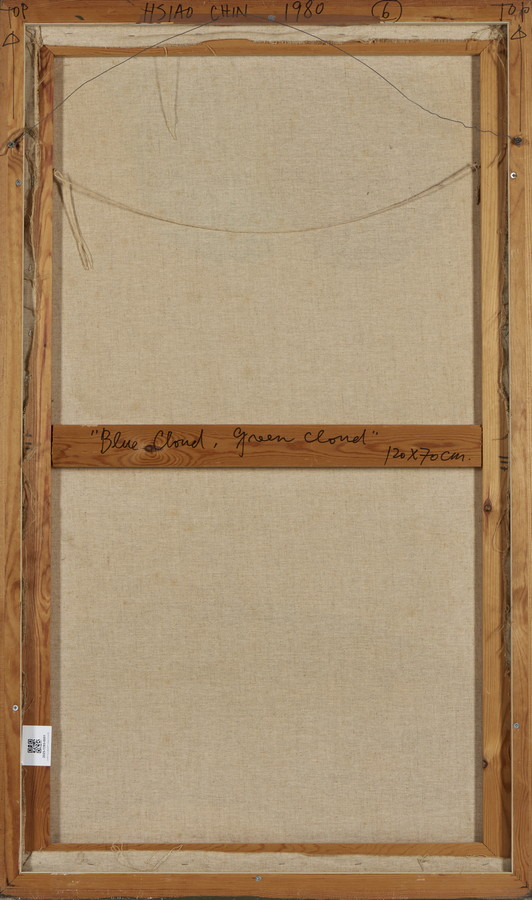 TOP HSIAO CHIN 1980 6 TOP
"Blue Cloud, green cloud"
120X70cm.